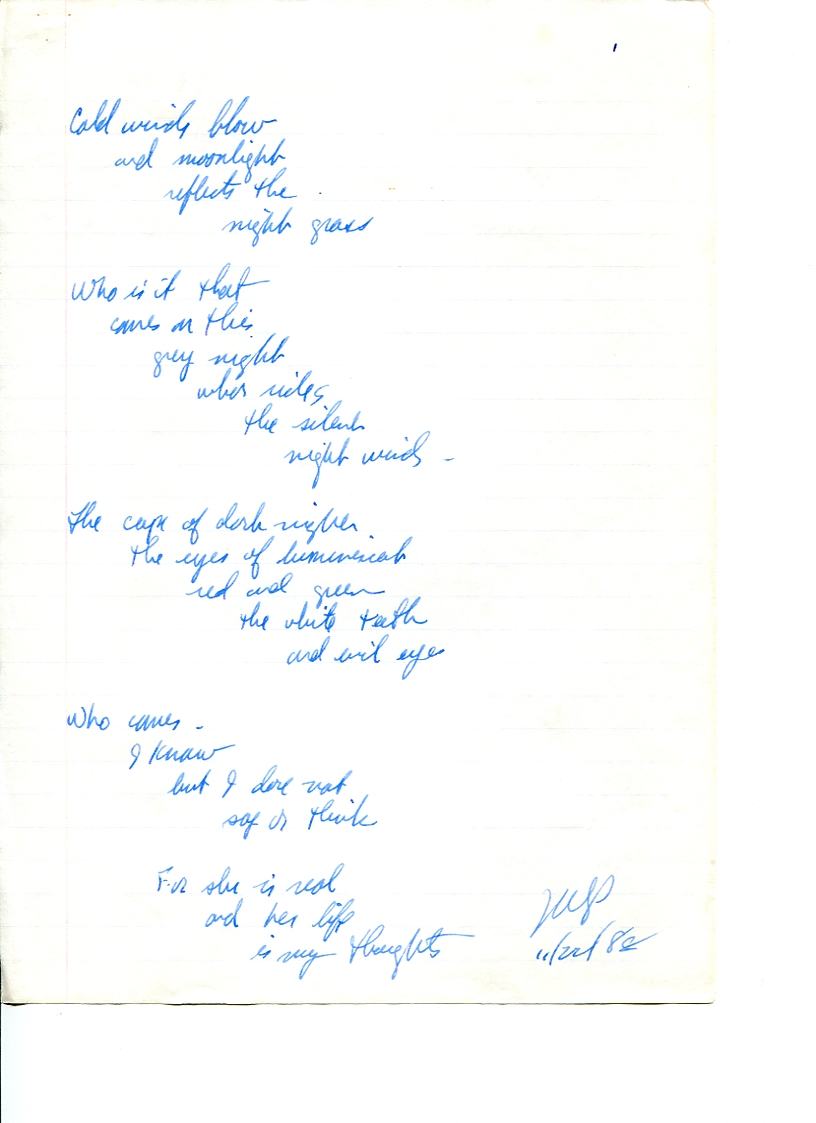 Cold winds blow
and moonlight
reflects the
night grass
Who is it that
comes on this
grey night
who rides
the silent
night winds -
The cape of dark nights
the eyes of luminescent
red and green
the white teeth
and evil eyes
Who comes -
I know
but I dare not
say or think
For she is real
and her life
is my thoughts
11/22/82